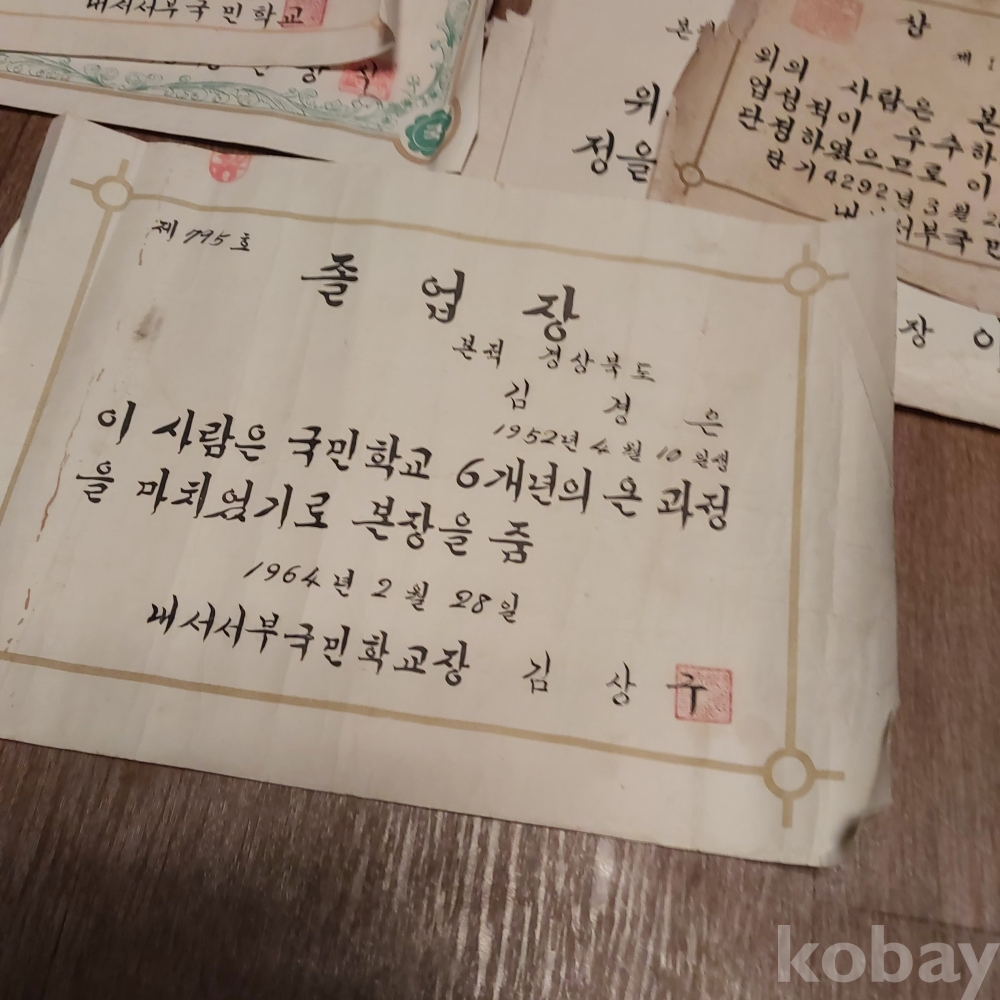 내서서부국민학교
장
본
위
정을
상
제 1
위의 사람은 본
업성적이 우수하
단정하였으므로 이
단기 4292년 3월 2
내서서부국민
장 이
제 795 호
졸 업 장
본적 경상북도
김 경 은
1952년 4월 10일생
이 사람은 국민학교 6개년의 온 과정
을 마치었기로 본장을 줌
1964년 2월 28일
내서서부국민학교장 김 상 구
kobay